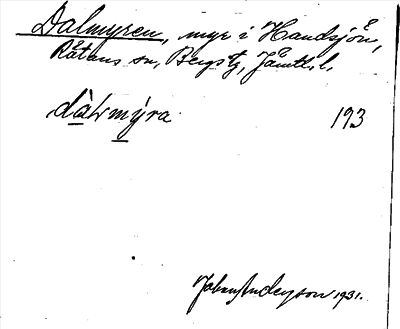 Dalmyren, myr i Handsjön,
Råtans sn, Bergs tg, Jämtl. l.
dàlmýra 193
Johan Anderson 1931.